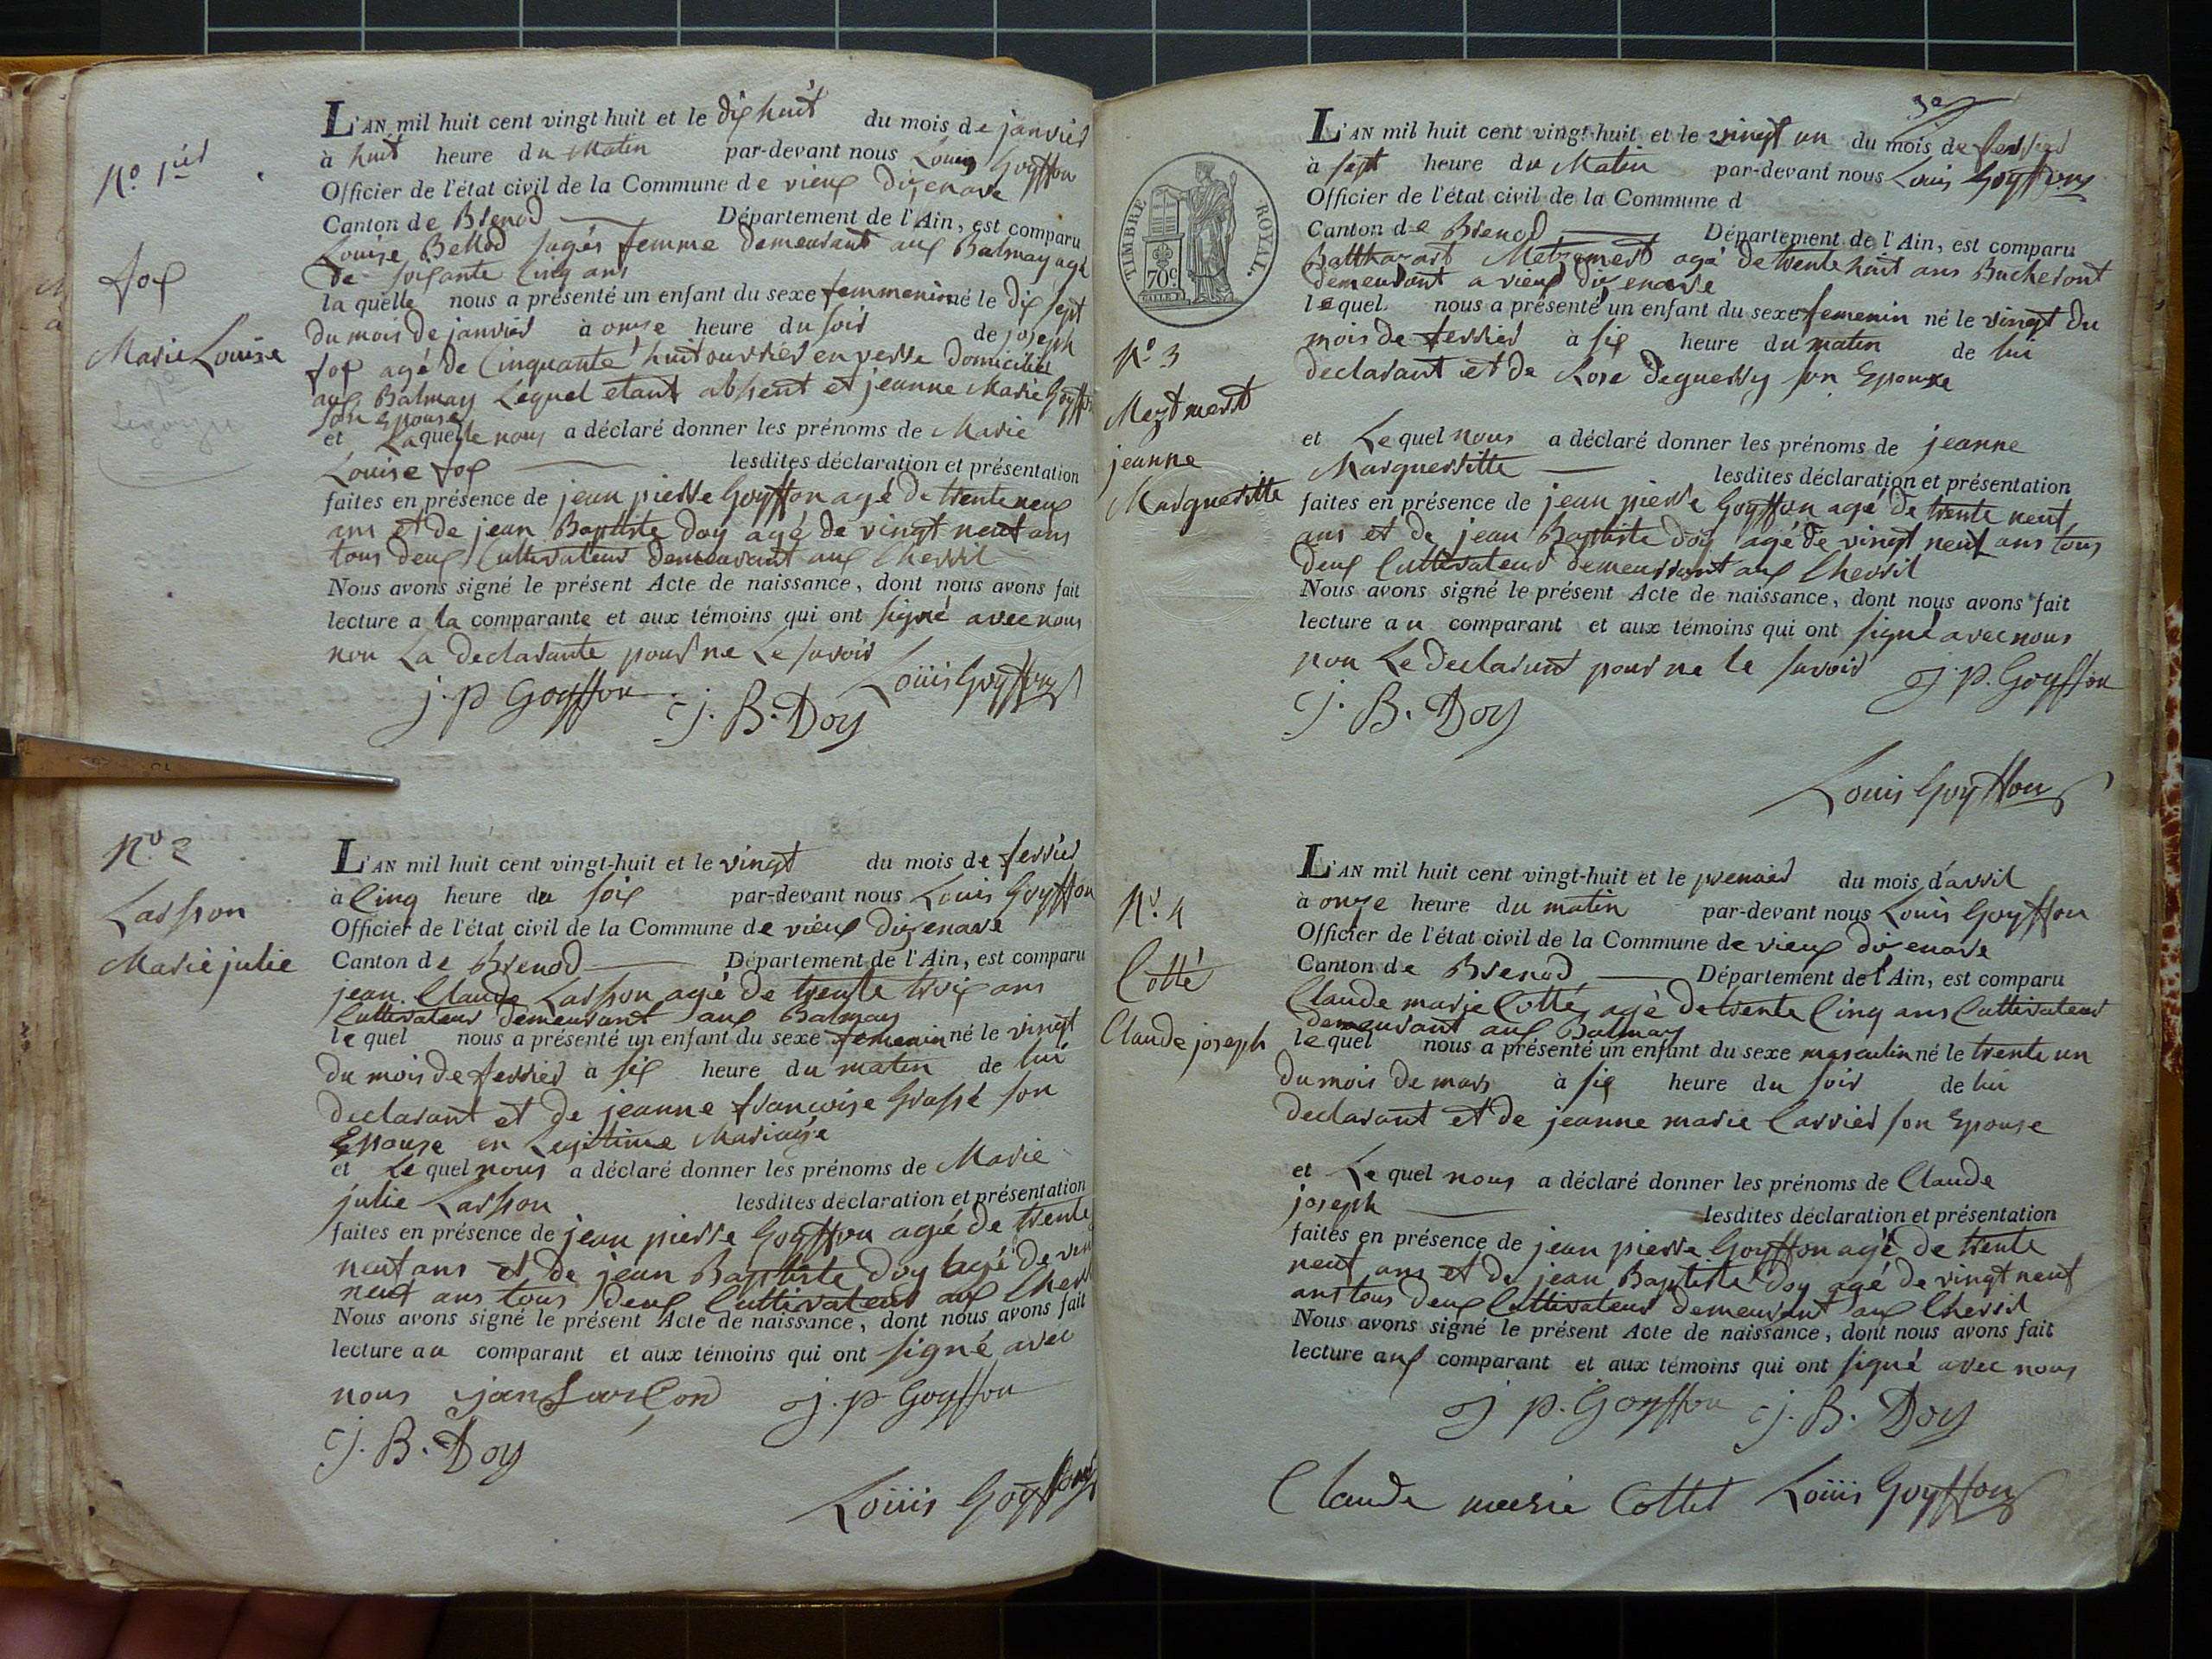 N.o 1ier
fox
Marie Louise
L'AN mil huit cent vingt huit et le dix huit du mois de janvier
à huit heure du Matin par-devant nous Louis Goyffon
Officier de l'état civil de la Commune de vieux dizenave
Canton de Brenod Département de l'Ain, est comparu
Louise Bellod sages femme demeurant aux Balmay agé
de soixante Cinq ans
la quelle nous a présenté un enfant du sexe femmenin né le dix sept
du mois de janvier à onze heure du soir de joseph
fox agé de Cinquante huit ouvrier en verre domicilié
aux Balmay Lequel etant absent et jeanne Marie Goyffon
son Epouse
et Laquelle nous a déclaré donner les prénoms de Marie
Louise fox lesdites déclaration et présentation
faites en présence de jean pierre Goyffon agé de trente neuf
ans et de jean Baptiste doy agé de vingt neuf ans
tous deux Cultivateur demeurant aux Chevril
Nous avons signé le présent Acte de naissance, dont nous avons fait
lecture a la comparante et aux témoins qui ont signé avec nous
non La declarante pour ne Le savoir
j. p Goyffon J. B. Doy Louis Goyffon
N.o 2
Larsson
Marie julie
L'AN mil huit cent vingt-huit et le vingt du mois de fevrier
à Cinq heure du soir par-devant nous Louis Goyffon
Officier de l'état civil de la Commune de vieux dizenave
Canton de Brenod Département de l'Ain, est comparu
jean Claude Larsson agé de trente trois ans
Cultivateur demeurant aux Balmay
le quel nous a présenté un enfant du sexe femenin né le vingt
du mois de fevrier à six heure du matin de lui
declarant et de jeanne francoise Grassé son
Epouse en Legitime Mariage
et Le quel nous a déclaré donner les prénoms de Marie
julie Larsson lesdites déclaration et présentation
faites en présence de jean pierre Goyffon agé de trente
neuf ans et de jean Baptiste doy agé de vin
neuf ans tous deux Cultivateur aux Chevr
Nous avons signé le présent Acte de naissance, dont nous avons fait
lecture au comparant et aux témoins qui ont signé avec
nous jan Larson J. p Goyffon
J. B. Doy
Louis Goyffon
TIMBRE ROYAL.
70c.
N.o 3
Meztmert
jeanne
Margueritte
L'AN mil huit cent vingt-huit et le vingt un du mois de fevrier
à sept heure du Matin par-devant nous Louis Goyffon
Officier de l'état civil de la Commune d
Canton de Brenod Département de l'Ain, est comparu
Balthazart Metzmert agé de trente huit ans Bucheront
demeurant a vieux dizenave
lequel nous a présenté un enfant du sexe femenin né le vingt du
mois de fevrier à six heure du matin de lui
declarant et de Rose deguerry son Epouse
et Le quel nous a déclaré donner les prénoms de jeanne
Margueritte lesdites déclaration et présentation
faites en présence de jean pierre Goyffon agé de trente neuf
ans et de jean Baptiste doy agé de vingt neuf ans tous
deux Cultivateur demeurant aux Chevril
Nous avons signé le présent Acte de naissance, dont nous avons fait
lecture au comparant et aux témoins qui ont signé avec nous
non Le declarant pour ne le savoir J. P. Goyffon
J. B. Doy
Louis Goyffon
N.o 4
Cotté
Claude joseph
L'AN mil huit cent vingt-huit et le premier du mois d'avril
à onze heure du matin par-devant nous Louis Goyffon
Officier de l'état civil de la Commune de vieux dizenave
Canton de Brenod Département de l'Ain, est comparu
Claude marie Cotté agé de trente Cinq ans Cultivateur
demeurant aux Balmay
le quel nous a présenté un enfant du sexe masculin né le trente un
du mois de mars à six heure du soir de lui
declarant et de jeanne marie Carrier son Epouse
et Le quel nous a déclaré donner les prénoms de Claude
joseph lesdites déclaration et présentation
faites en présence de jean pierre Goyffon agé de trente
neuf ans et de jean Baptiste doy agé de vingt neuf
ans tous deux Cultivateur demeurant aux Chevril
Nous avons signé le présent Acte de naissance, dont nous avons fait
lecture aux comparant et aux témoins qui ont signé avec nous
J P. Goyffon J. B. Doy
Claude marie Cottet Louis Goyffon